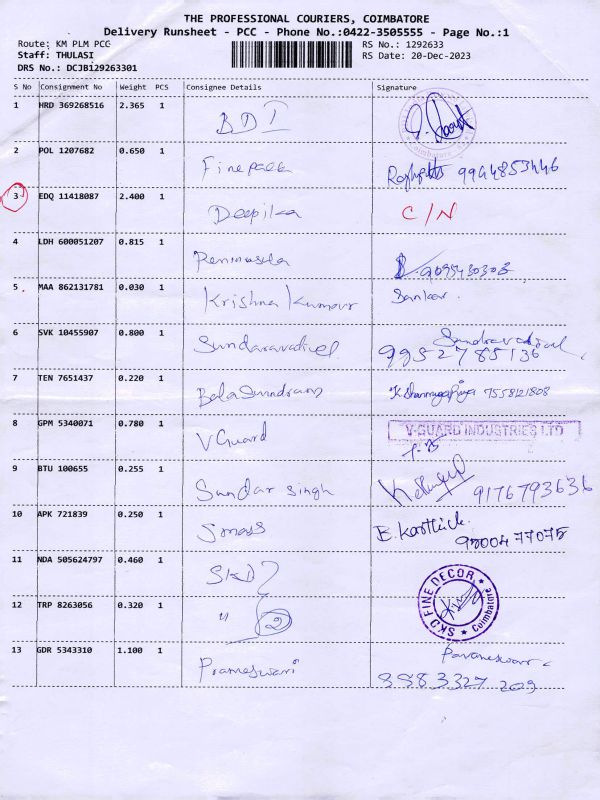 THE PROFESSIONAL COURIERS, COIMBATORE
Delivery Runsheet - PCC - Phone No.:0422-3505555 - Page No.:1
Route: KM PLM PCC RS No.: 1292633
Staff: THULASI RS Date: 20-Dec-2023
DRS No.: DCJB129263301
S No Consignment No Weight PCS Consignee Details Signature
1 HRD 369268516 2.365 1 BDI
Coimbatore
2 POL 1207682 0.650 1
9944853446
3 EDQ 11418087 2.400 1 Deepika C/N
4 LDH 600051207 0.815 1
5 MAA 862131781 0.030 1 Krishna Kumar Sankar.
6 SVK 10455907 0.800 1 Sundaravadivel
9952785136
7 TEN 7651437 0.220 1 BalaSundram 7558121808
8 GPM 5340071 0.780 1 V Guard V-GUARD INDUSTRIES LTD
9 BTU 100655 0.255 1 Sundar Singh 9176793636
10 APK 721839 0.250 1 B. Karthick.
9500477075
11 NDA 505624797 0.460 1 SKD
12 TRP 8263056 0.320 1 " 2 SKD FINE DECOR Coimbatore
13 GDR 5343310 1.100 1 Prameswari
8883327 209